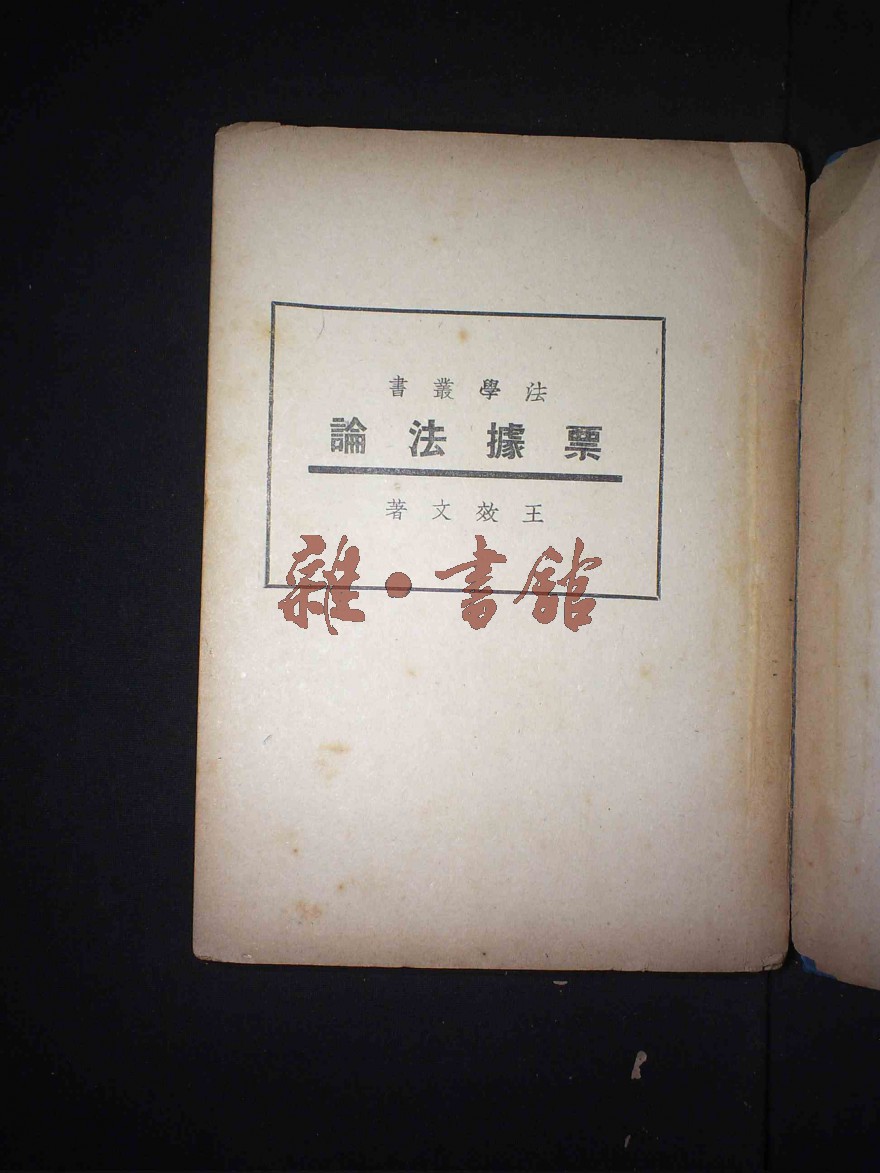 法學叢書
票據法論
王效文著
雜·書館